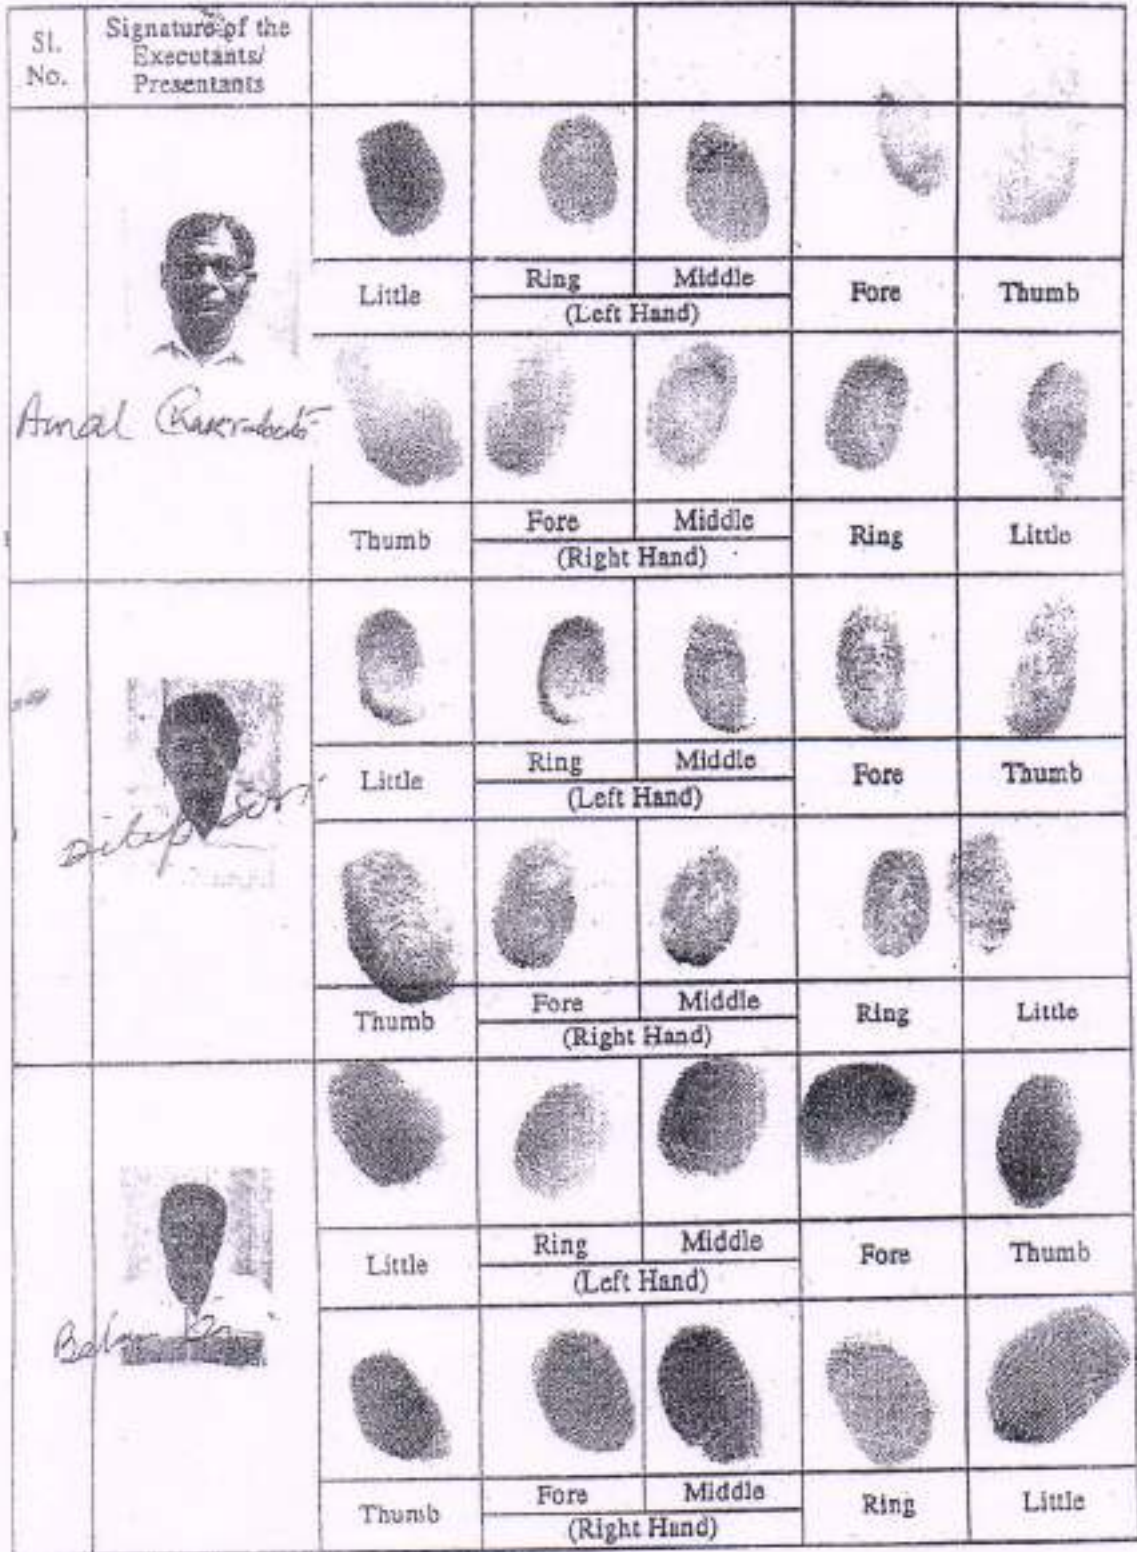 Sl. No.
Signature of the Executants/ Presentants
Amal
Little Ring Middle Fore Thumb
(Left Hand)
Thumb Fore Middle Ring Little
(Right Hand)
Dilip
Little Ring Middle Fore Thumb
(Left Hand)
Thumb Fore Middle Ring Little
(Right Hand)
Little Ring Middle Fore Thumb
(Left Hand)
Thumb Fore Middle Ring Little
(Right Hand)